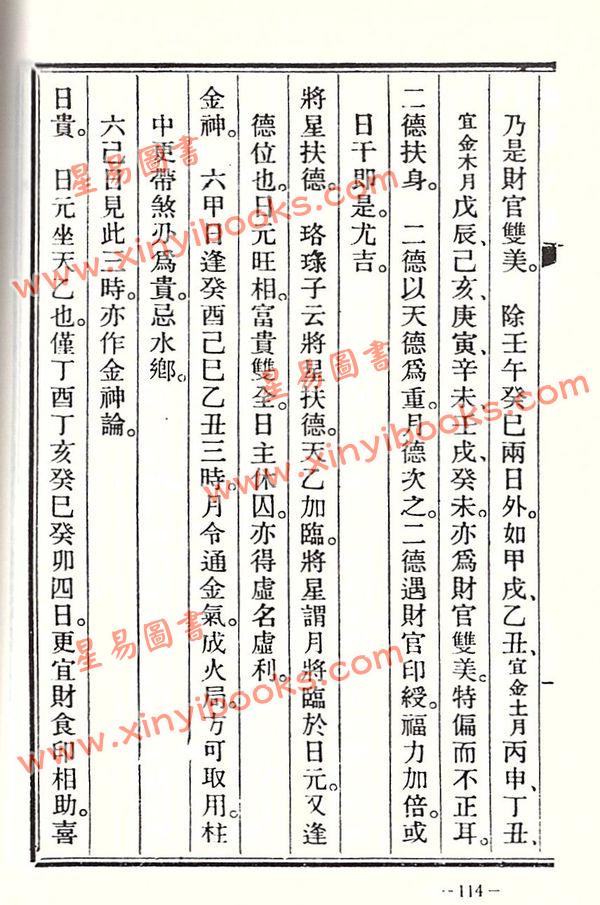 乃是財官雙美。　除壬午癸巳兩日外。如甲戌、乙丑、宜金土月丙申、丁丑、
宜金木月戊辰、己亥、庚寅、辛未、壬戌、癸未。亦爲財官雙美。特偏而不正耳。
二德扶身。　二德以天德爲重。月德次之。二德遇財官印綬。福力加倍。或
日干即是。尤吉。
將星扶德。　珞琭子云將星扶德。天乙加臨。將星謂月將臨於日元。又逢
德位也。日元旺相。富貴雙全。日主休囚。亦得虛名虛利。
金神。　六甲日逢癸酉己巳乙丑三時。月令通金氣。成火局。方可取用。柱
中更帶煞刃爲貴。忌水鄉。
六己日見此三時。亦作金神論。
日貴。　日元坐天乙也。僅丁酉丁亥癸巳癸卯四日。更宜財食印相助。喜
一
--114--
星易圖書
www.xinyibooks.com
星易圖書
www.xinyibooks.com
星易圖書
www.xinyibooks.com